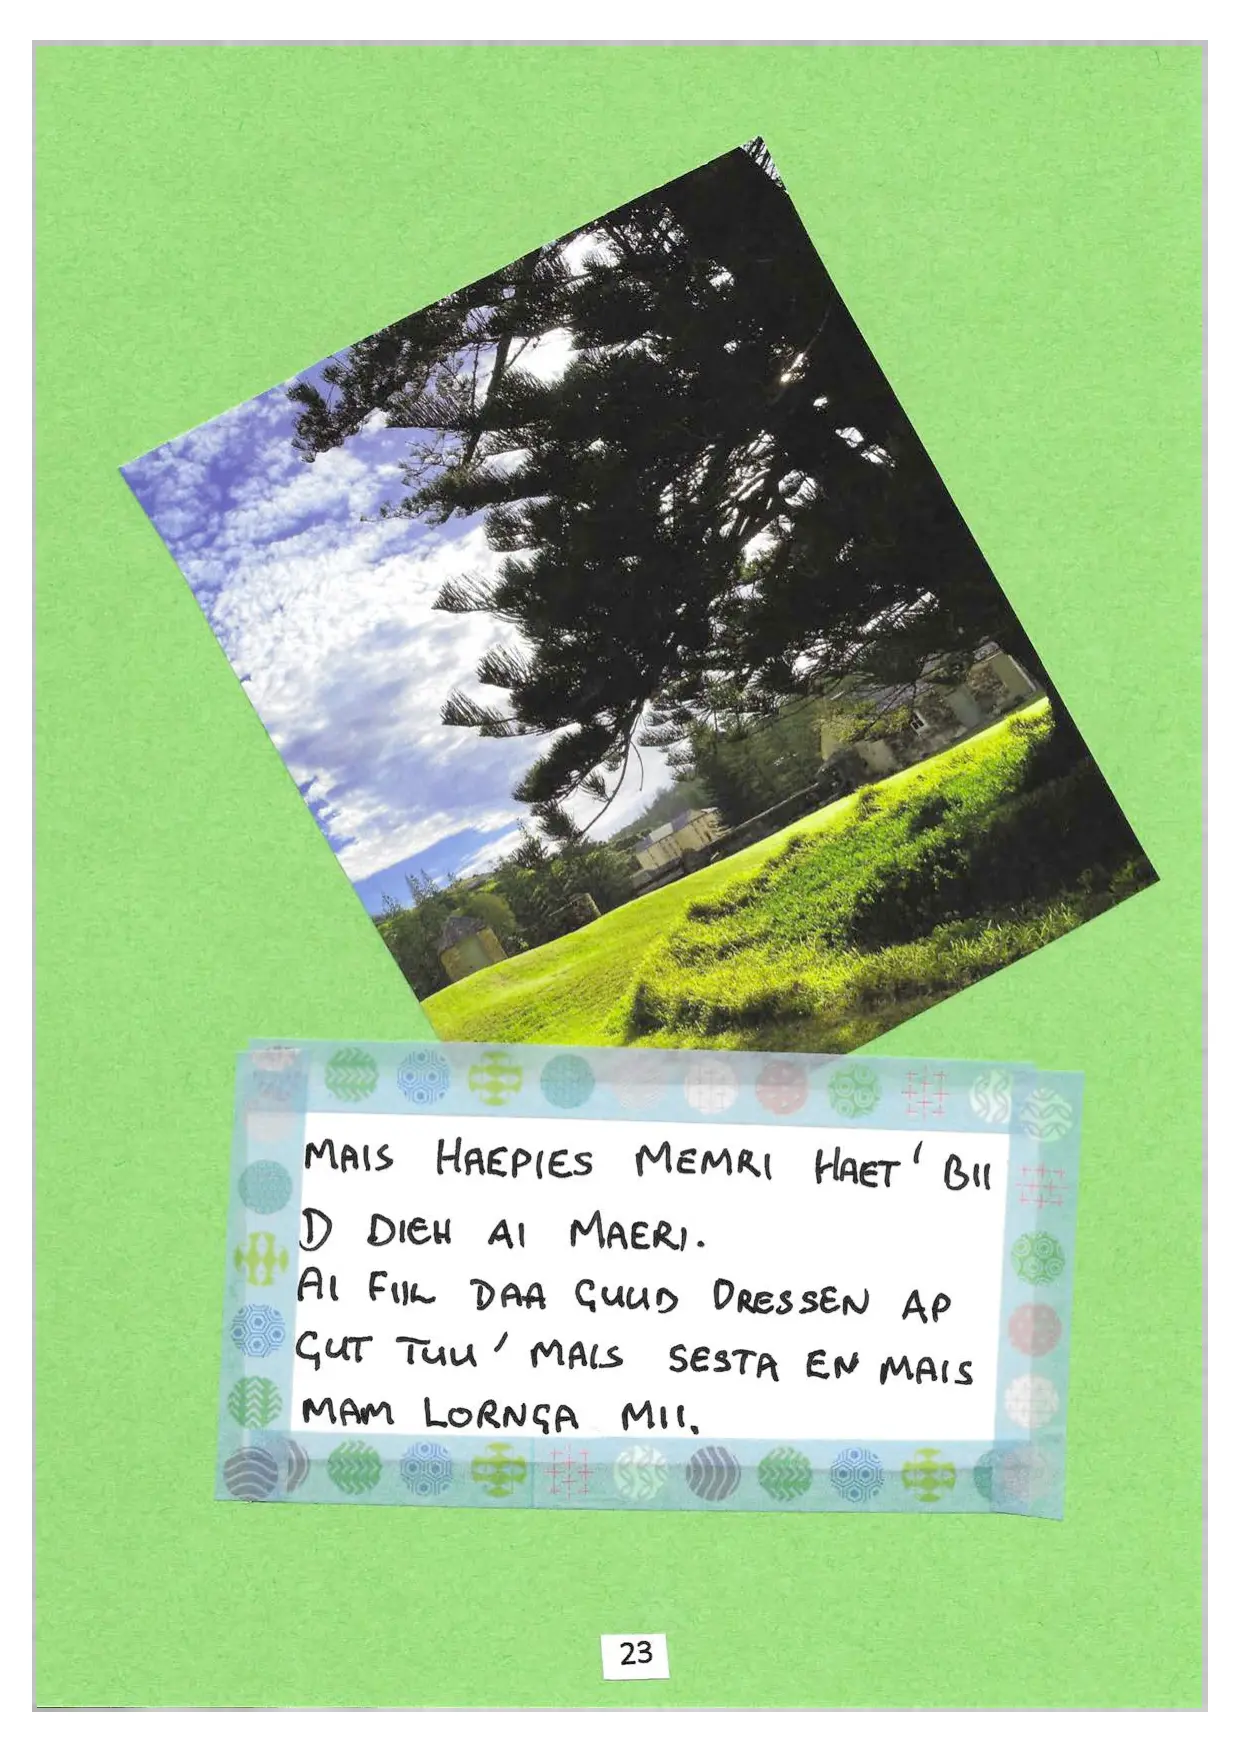 MAIS HAEPIES MEMRI HAET' BII
D DIEH AI MAERI.
AI FIIL DAA GUUD DRESSEN AP
GUT TUU' MAIS SESTA EN MAIS
MAM LORNGA MII.
23